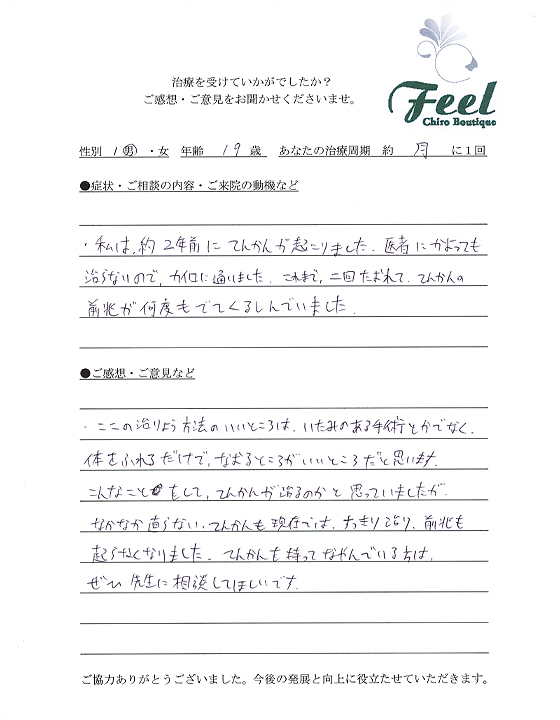 治療を受けていかがでしたか？
ご感想・ご意見をお聞かせくださいませ。
Feel
Chiro Boutique
性別 / 男 ・女 年齢 19 歳 あなたの治療周期 約 月 に１回
●症状・ご相談の内容・ご来院の動機など
・私は、約2年前にてんかんが起こりました。医者にかよっても
治らないので、カイロに通いました。これまで、二回たおれて、てんかんの
前兆が何度もでてくるしんでいました。
●ご感想・ご意見など
・ここの治りょう方法のいいところは、いたみのある手術とかでなく、
体をふれるだけで、なおるところがいいところだと思います。
こんなことをして、てんかんが治るのかと思っていましたが、
なかなか直らない、てんかんも現在では、すっきり治り、前兆も
起らなくなりました。てんかんを持ってなやんでいる方は、
ぜひ先生に相談してほしいです。
ご協力ありがとうございました。今後の発展と向上に役立たせていただきます。